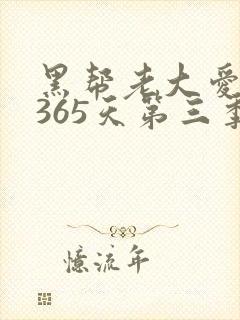 黑帮老大爱
365天第三季
憶流年